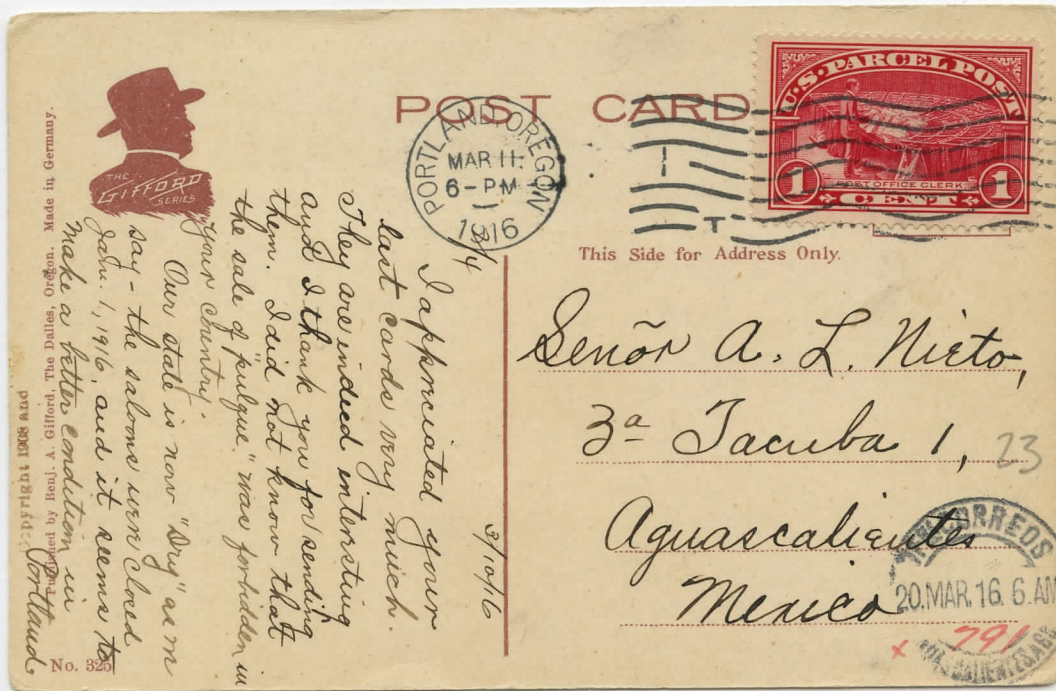 POST CARD
U.S. PARCEL POST
1 POST OFFICE CLERK 1
CENT
PORTLAND, OREGON
MAR 11
6-PM
1916
This Side for Address Only.
THE
GIFFORD
SERIES
Published by Benj. A. Gifford, The Dalles, Oregon. Made in Germany.
Copyright 1908 and
No. 325
3/10/16
I appreciated your
last cards very much.
They are indeed interesting
and I thank you for sending
them. I did not know that
the sale of "pulque" was forbidden in
your country.
Our state is now "Dry" as we
say - the saloons were closed
Jan. 1, 1916, and it seems to
make a better condition in
Portland
Señor A. L. Nieto,
3a Tacuba 1,
Aguascalientes
Mexico
23
CORREOS
20.MAR.16. 6.AM
AGUASCALIENTES, AGS
x 791